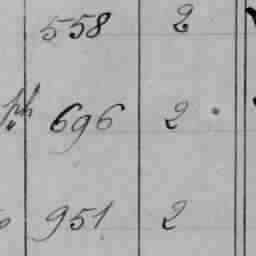 558 2
ph 696 2
951 2